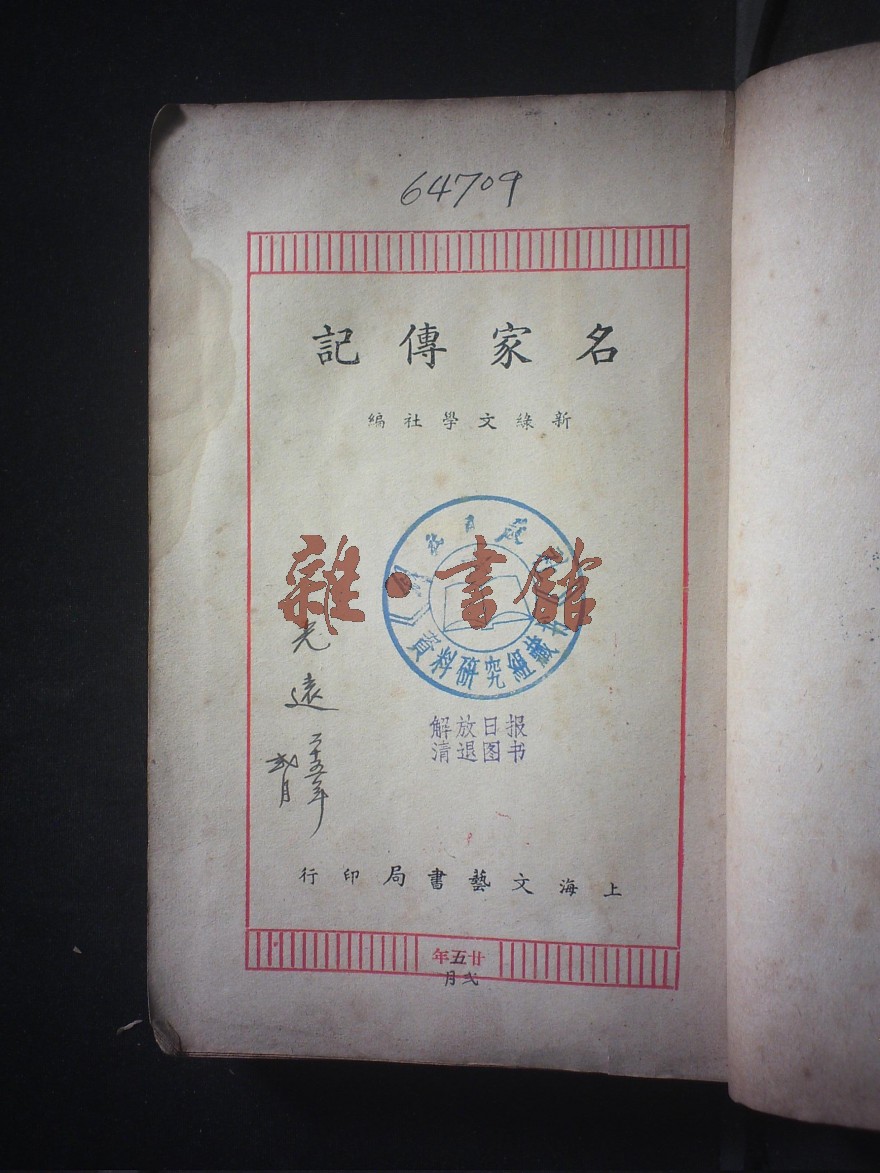 64709
名家傳記
新綠文學社編
雜·書館
資料研究組藏书
光遠
二十五年
弍月
解放日报
清退图书
上海文藝書局印行
廿五年
弍月